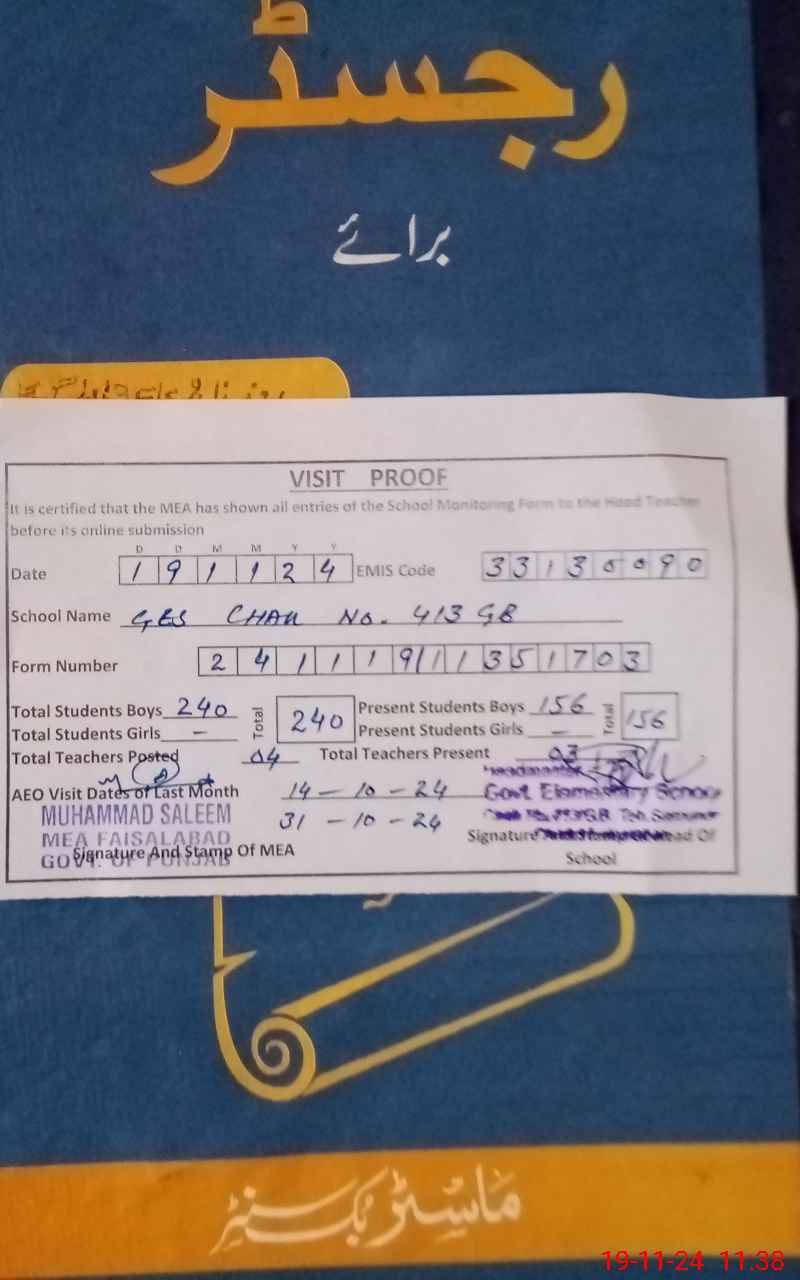 رجسٹر
برائے
VISIT PROOF
It is certified that the MEA has shown all entries of the School Monitoring Form to the Head Teacher
before its online submission
D D M M Y Y
Date 1 9 1 1 2 4 EMIS Code 3 3 1 3 0 0 9 0
School Name GES CHAK No. 413 GB
Form Number 2 4 1 1 1 9 1 1 3 5 1 7 0 3
Total Students Boys 240 Total 240 Present Students Boys 156 Total 156
Total Students Girls - Present Students Girls -
Total Teachers Posted 04 Total Teachers Present 03
AEO Visit Dates of Last Month 14-10-24
31-10-24
MUHAMMAD SALEEM
MEA FAISALABAD
GOVT. OF PUNJAB
Signature And Stamp Of MEA
Headmaster
Govt. Elementary School
Signature And Stamp Of Head Of
School
ماسٹر بک سنٹر
19-11-24 11:38